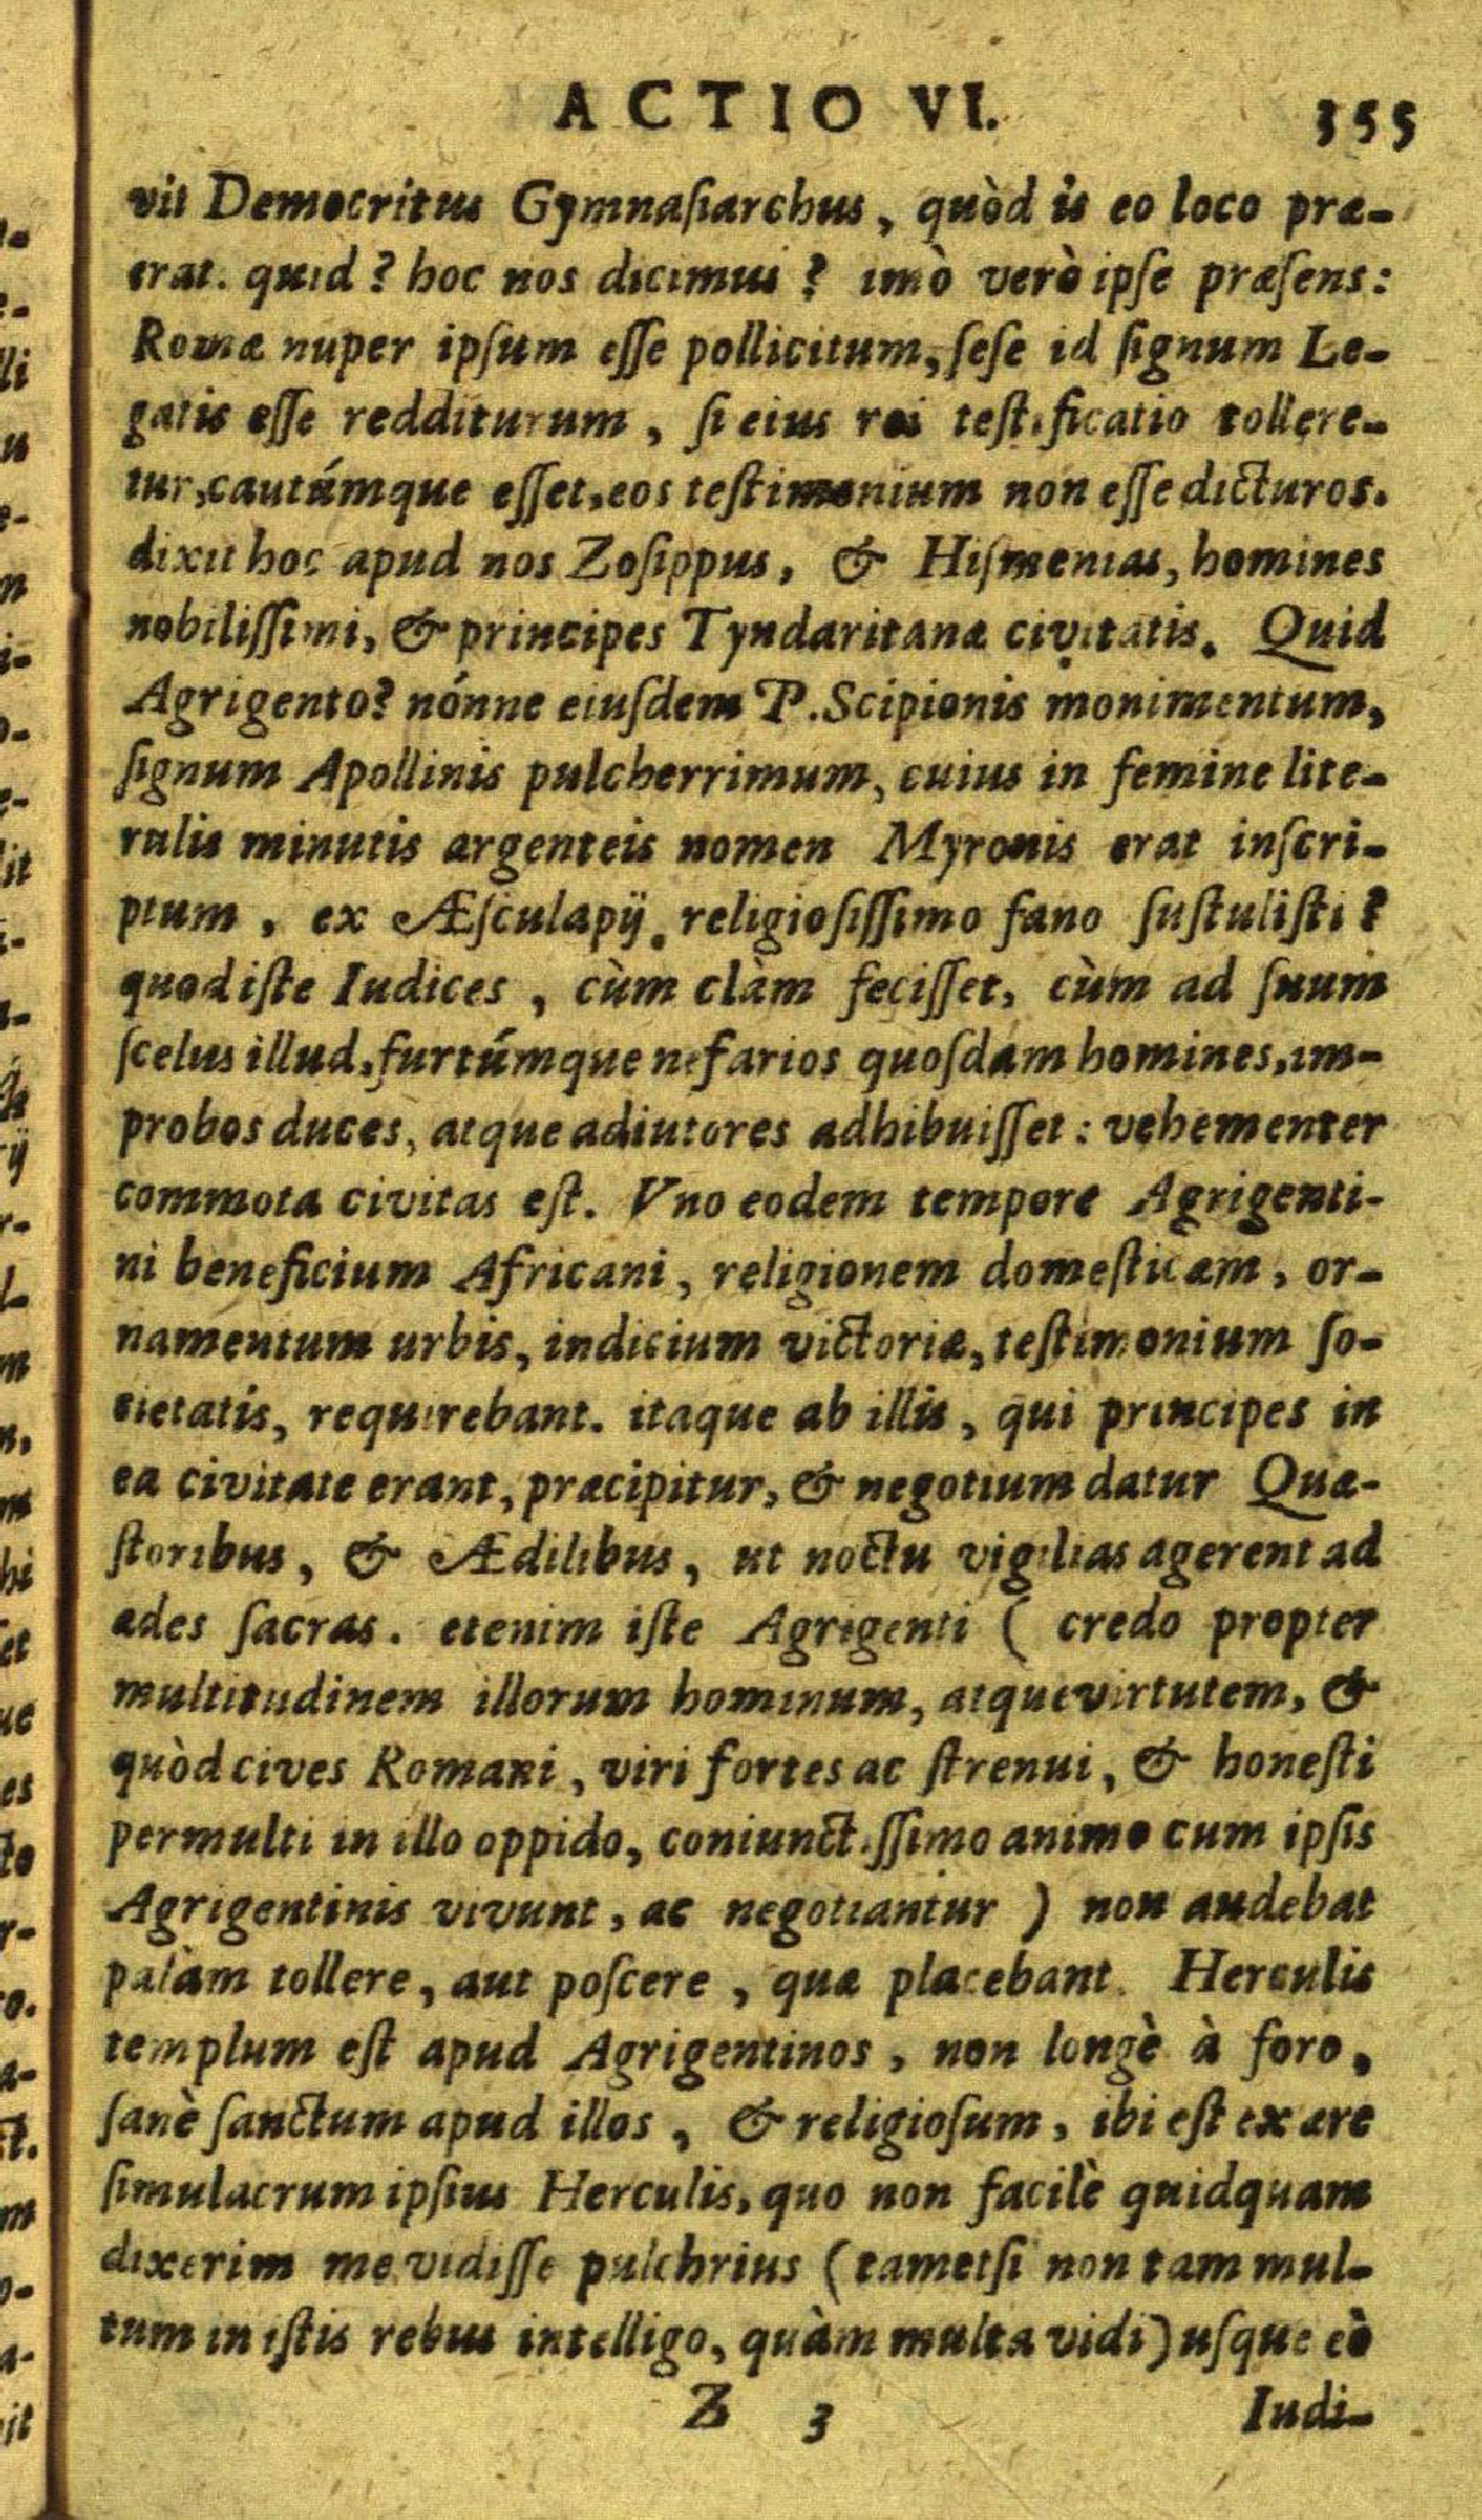 ACTIO VI. 355
vit Democritus Gymnaſiarchus, quòd is eo loco præ-
erat. quid? hoc nos dicimus? imò verò ipſe præſens:
Romæ nuper ipſum eſſe pollicitum, ſeſe id ſignum Le-
gatis eſſe redditurum, ſi eius rei teſtificatio tollere-
tur, cautúmque eſſet, eos teſtimonium non eſſe dicturos.
dixit hoc apud nos Zoſippus, & Hiſmenias, homines
nobiliſſimi, & principes Tyndaritanæ civitatis. Quid
Agrigento? nónne eiuſdem P. Scipionis monimentum,
ſignum Apollinis pulcherrimum, cuius in femine lite-
rulis minutis argenteis nomen Myronis erat inſcri-
ptum, ex Æſculapij religioſiſſimo fano ſuſtuliſti?
quod iſte Iudices, cùm clàm feciſſet, cùm ad ſuum
ſcelus illud, furtúmque nefarios quoſdam homines, im-
probos duces, atque adiutores adhibuiſſet: vehementer
commota civitas eſt. Vno eodem tempore Agrigenti-
ni beneficium Africani, religionem domeſticam, or-
namentum urbis, indicium victoriæ, teſtimonium ſo-
cietatis, requirebant. itaque ab illis, qui principes in
ea civitate erant, præcipitur, & negotium datur Quæ-
ſtoribus, & Ædilibus, ut noctu vigilias agerent ad
ædes ſacras. etenim iſte Agrigenti ( credo propter
multitudinem illorum hominum, atque virtutem, &
quòd cives Romani, viri fortes ac ſtrenui, & honeſti
permulti in illo oppido, coniunctiſſimo animo cum ipſis
Agrigentinis vivunt, ac negotiantur ) non audebat
palàm tollere, aut poſcere, quæ placebant. Herculis
templum eſt apud Agrigentinos, non longè à foro,
ſanè ſanctum apud illos, & religioſum, ibi eſt ex ære
ſimulacrum ipſius Herculis, quo non facilè quidquam
dixerim me vidiſſe pulchrius (tametſi non tam mul-
tum in iſtis rebus intelligo, quàm multa vidi) uſque eò
Z 3 Iudi-